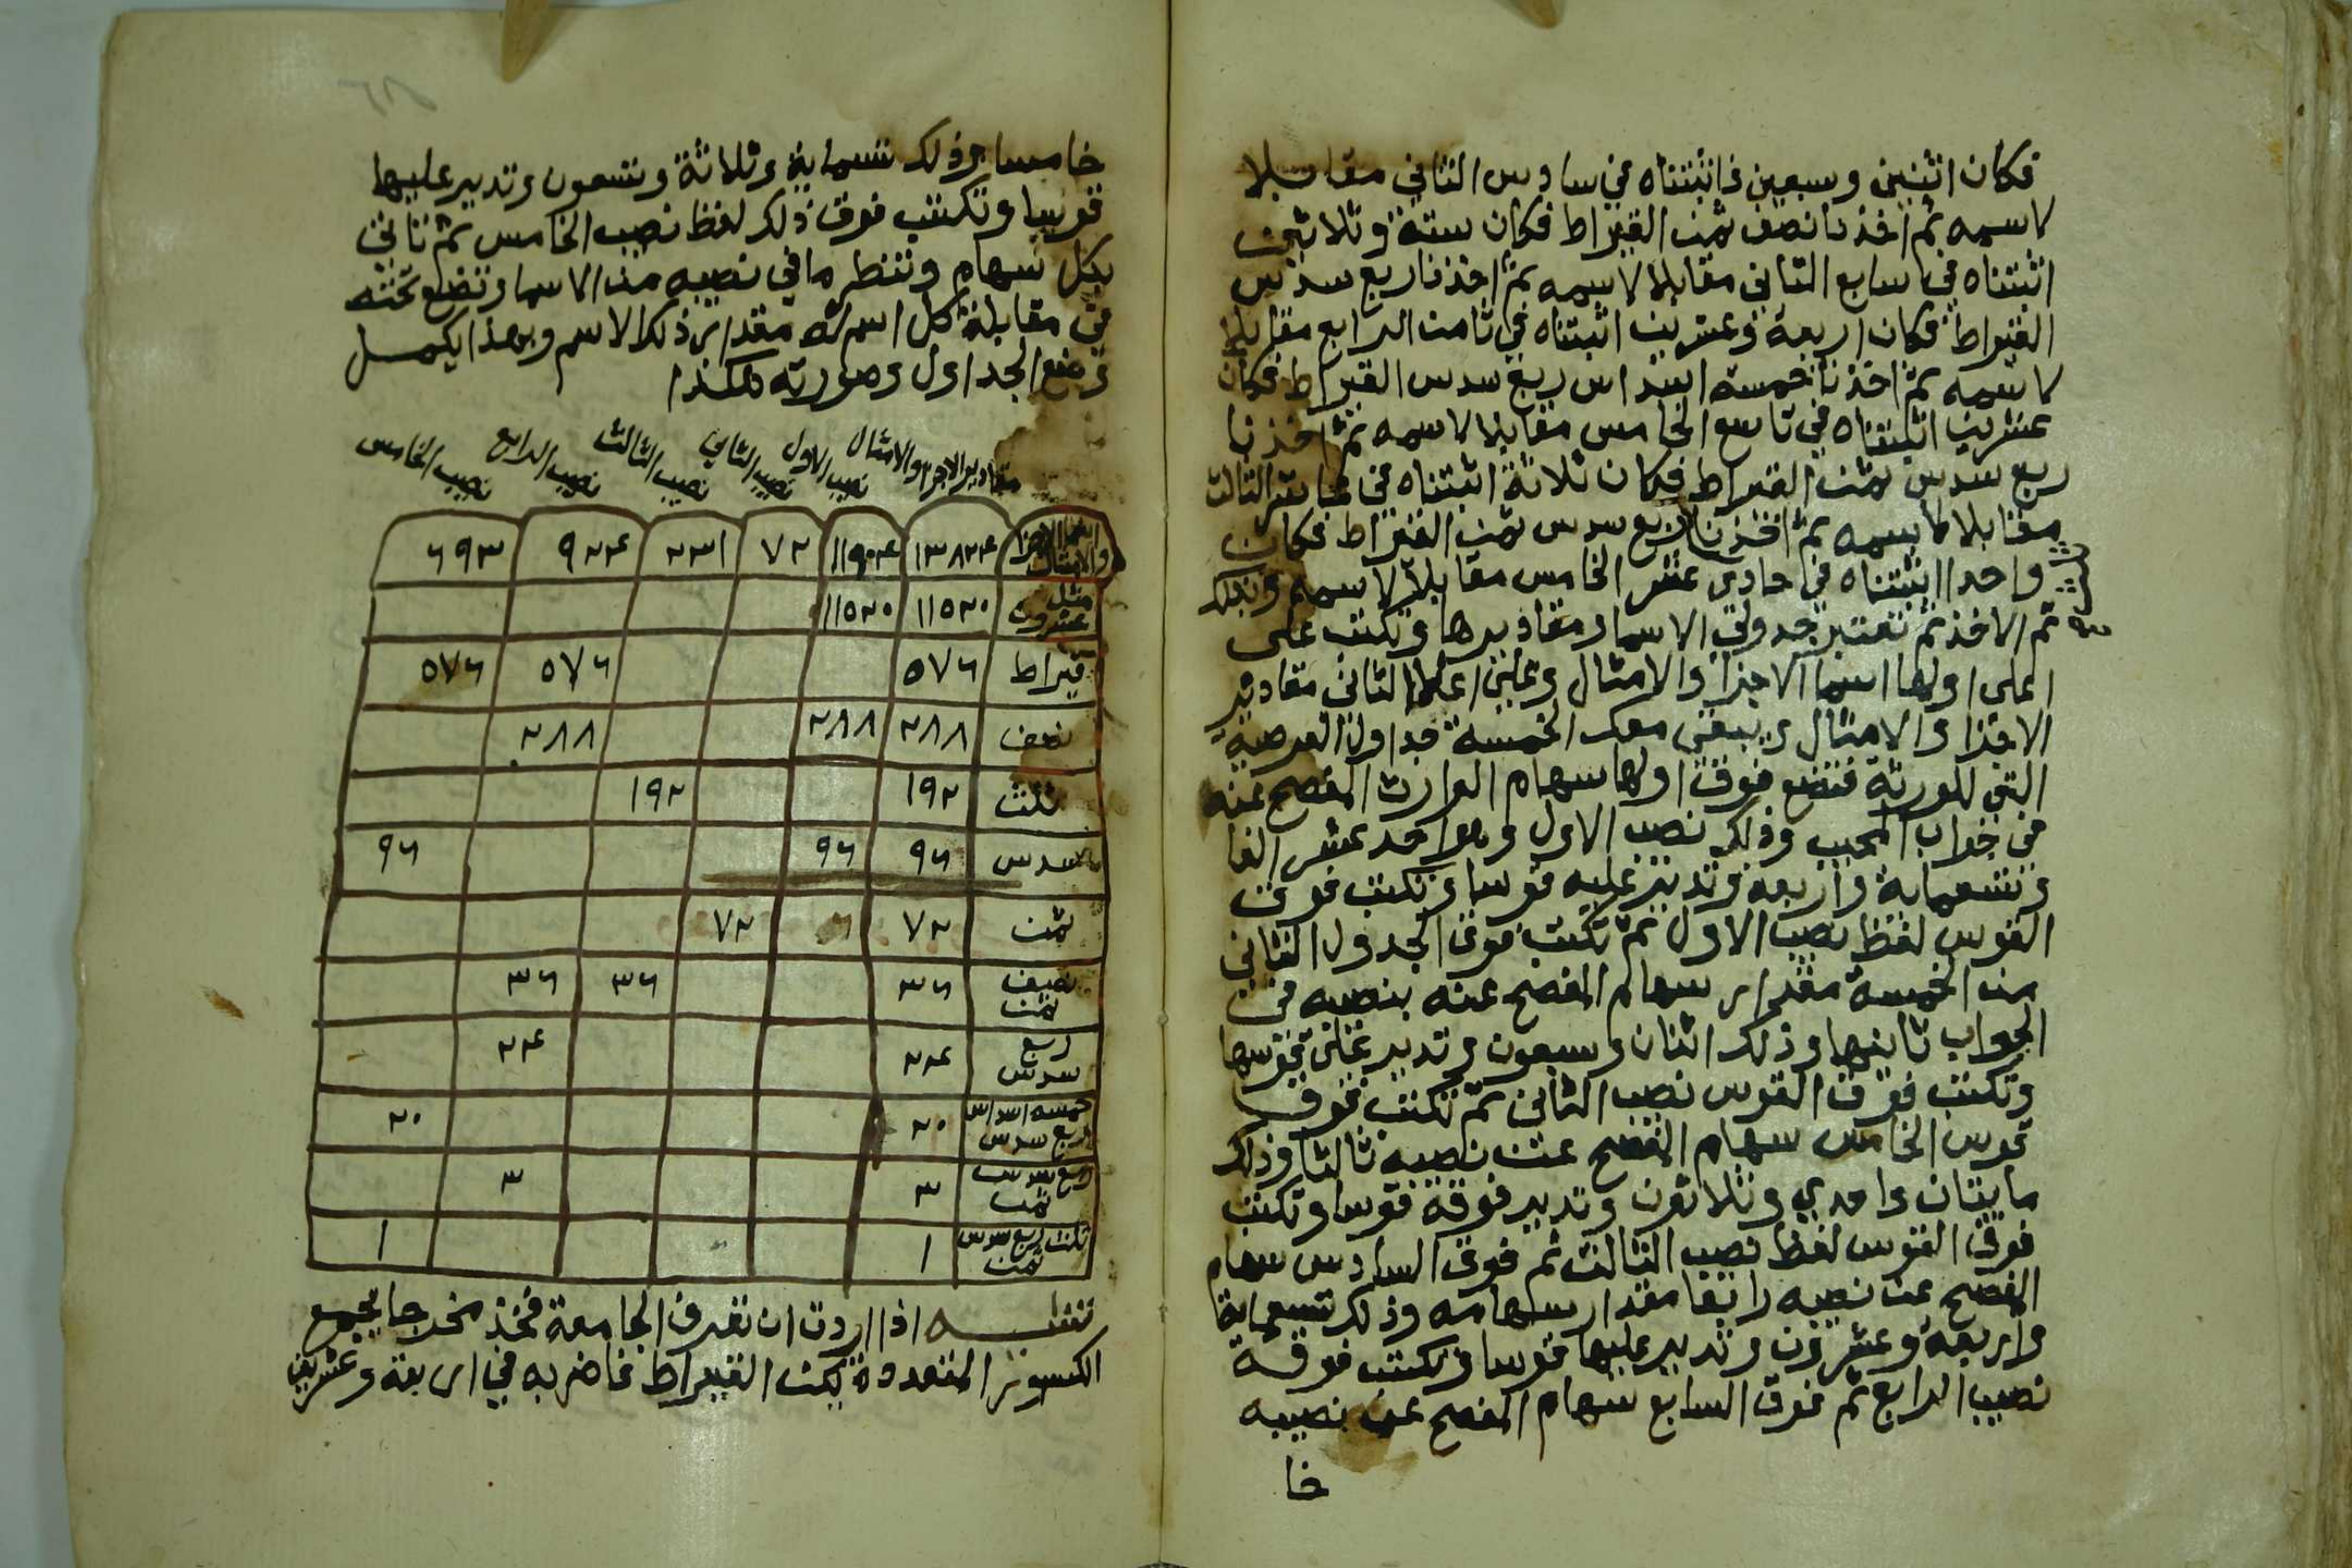 فكان اثنين وسبعين فاثبتناه في سادس الثاني مقابلا
لاسمه ثم اخذنا نصف ثمن القيراط فكان ستة وثلاثين
اثبتناه في سابع الثاني مقابلا لاسمه ثم اخذنا ربع سدس
القيراط فكان اربعة وعشرين اثبتناه في ثامن الرابع مقابلا
لاسمه ثم اخذنا خمسة اسداس ربع سدس القيراط فكان
عشرين اثبتناه في تاسع الخامس مقابلا لاسمه ثم اخذنا
ربع سدس ثمن القيراط فكان ثلاثة اثبتناه في عاشر الثالث
مقابلا لاسمه ثم اخذنا ربع سدس ثمن القيراط فكان
واحدا اثبتناه في حادي عشر الخامس مقابلا لاسمه وبذلك
تم الاخذ ثم تعتبر جدولي الاسما ومقاديرها وتكتب على
اعلى اولها اسما الاجزا والامثال وعلى اعلا الثاني مقادير
الاجزا والامثال ويبقى معك الخمسة جداول العرضية
التي للورثة فتضع فوق اولها سهام الوارث المفصح عنه
في جواب المجيب وذلك نصيب الاول وهو احد عشر الفا
وتسعماية واربعة وتدير عليه قوسا وتكتب فوق
القوس لفظ نصيب الاول ثم تكتب فوق الجدول الثاني
من الخمسة مقدار سهام المفصح عنه بنصيبه في
الجواب ثانيها وذلك اثنان وسبعون وتدير على قوسها
وتكتب فوق القوس نصيب الثاني ثم تكتب فوق
قوس الخامس سهام المفصح عن نصيبه ثالثا وذلك
مايتان واحدي وثلاثون وتدير فوقه قوسا وتكتب
فوق القوس لفظ نصيب الثالث ثم فوق السادس سهام
المفصح عن نصيبه رابعا مقدار سهامه وذلك تسعماية
واربعة وعشرون وتدير عليها قوسا وتكتب فوقه
نصيب الرابع ثم فوق السابع سهام المفصح عن نصيبه
خا
خامسا وذلك ستماية وثلاثة وتسعون وتدير عليها
قوسا وتكتب فوق ذلك لفظ نصيب الخامس ثم تاتي
بكل سهام وتنظر ما في نصيبه من الاسما وتضع تحته
في مقابلة كل اسم له مقدار ذلك الاسم وبهذا يكمل
وضع الجداول وصورته هكذا
مقادير الاجزا والامثال نصيب الاول نصيب الثاني نصيب الثالث نصيب الرابع نصيب الخامس
اسما الاجزا والامثال ١٣٨٢٤ ١١٩٠٤ ٧٢ ٢٣١ ٩٢٤ ٦٩٣
مثل عشرون ١١٥٢٠ ١١٥٢٠
قيراط ٥٧٦ ٥٧٦ ٥٧٦
نصف ٢٨٨ ٢٨٨ ٢٨٨
ثلث ١٩٢ ١٩٢
سدس ٩٦ ٩٦ ٩٦
ثمن ٧٢ ٧٢
نصف ثمن ٣٦ ٣٦ ٣٦
ربع سدس ٢٤ ٢٤
خمسة اسداس ربع سدس ٢٠ ٢٠
ربع سدس ثمن ٣ ٣
ثلث ربع سدس ثمن ١ ١
تنبيه اذا اردت ان تعرف الجامعة فخذ مخرجا يجمع
الكسور المتعددة بكل القيراط فاضربه في اربعة وعشرين